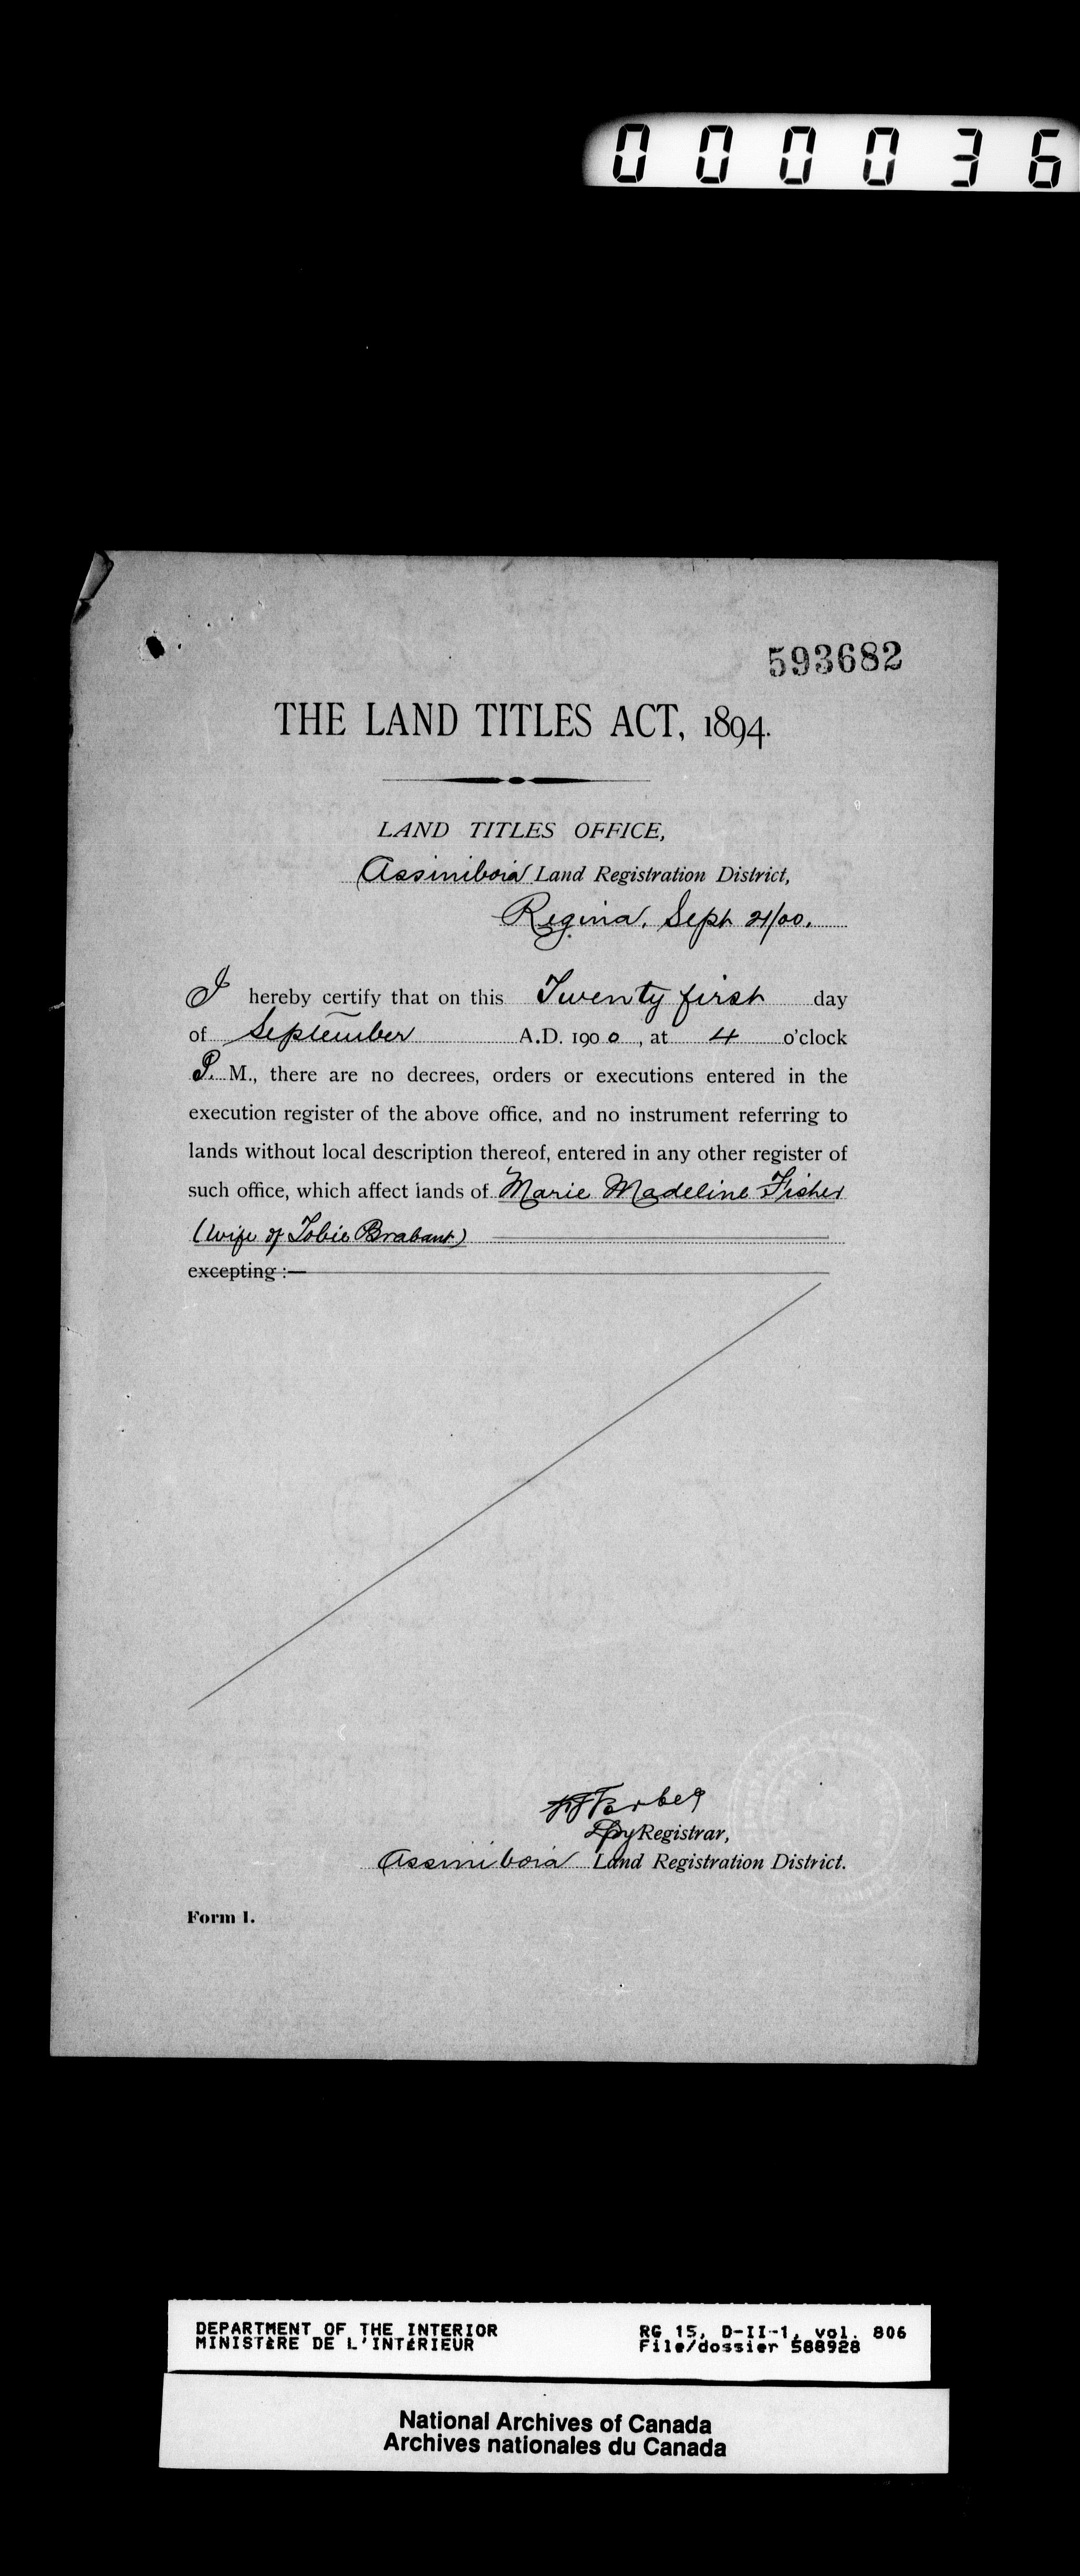 000036
593682
THE LAND TITLES ACT, 1894.
LAND TITLES OFFICE,
Assiniboia Land Registration District,
Regina, Sept 21/00.
I hereby certify that on this Twenty first day
of September A.D. 1900, at 4 o'clock
P. M., there are no decrees, orders or executions entered in the
execution register of the above office, and no instrument referring to
lands without local description thereof, entered in any other register of
such office, which affect lands of Marie Madeline Fisher
(wife of Tobie Brabant)
excepting :—
Dpy Registrar,
Assiniboia Land Registration District.
Form 1.
DEPARTMENT OF THE INTERIOR
MINISTÈRE DE L'INTÉRIEUR
RG 15, D-II-1, vol. 806
File/dossier 588928
National Archives of Canada
Archives nationales du Canada